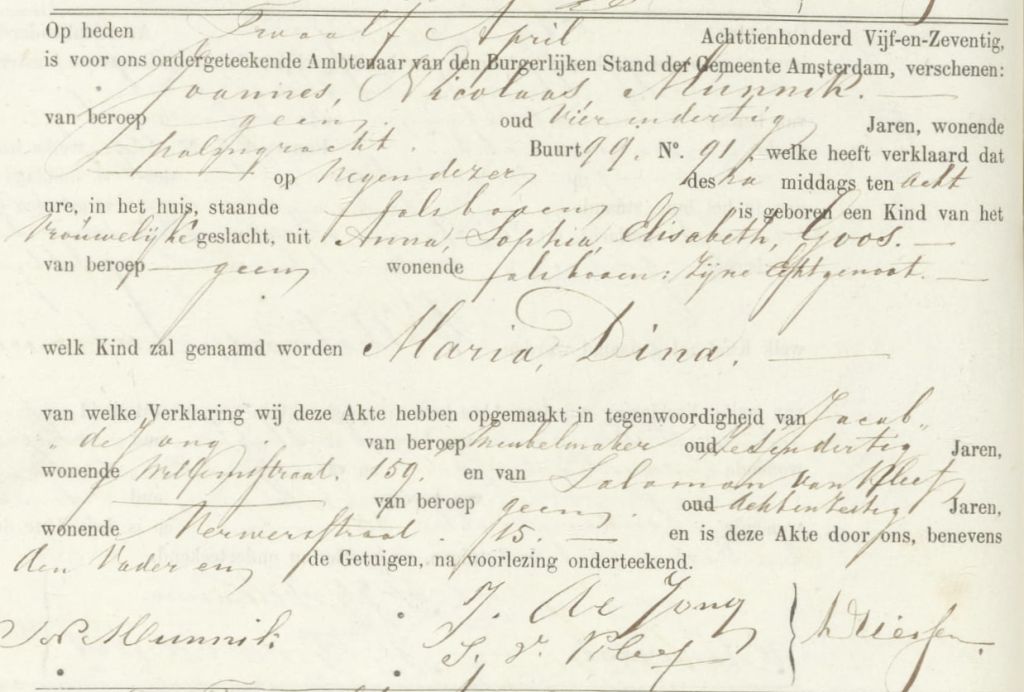 Op heden Twaalf April Achttienhonderd Vijf-en-Zeventig,
is voor ons ondergeteekende Ambtenaar van den Burgerlijken Stand der Gemeente Amsterdam, verschenen:
Joannes, Nicolaas, Munnik.
van beroep geen, oud vier endertig Jaren, wonende
palmgracht. Buurt 99. No. 91, welke heeft verklaard dat
op negen dezer, des na middags ten Acht
ure, in het huis, staande alsboven is geboren een Kind van het
Vrouwelijke geslacht, uit Anna, Sophia, Elisabeth, Goos.
van beroep geen wonende als boven: zijne Echtgenoot.
welk Kind zal genaamd worden Maria, Dina.
van welke Verklaring wij deze Akte hebben opgemaakt in tegenwoordigheid van Jacob
de Jong. van beroep meubelmaker oud Zesendertig Jaren,
wonende Willemstraat. 159. en van Salomon van Kleef
van beroep geen. oud Achtenzestig Jaren,
wonende Verwerstraat. 15. en is deze Akte door ons, benevens
den Vader en de Getuigen, na voorlezing onderteekend.
J. de Jong
JN Munnik. S. v. Kleef